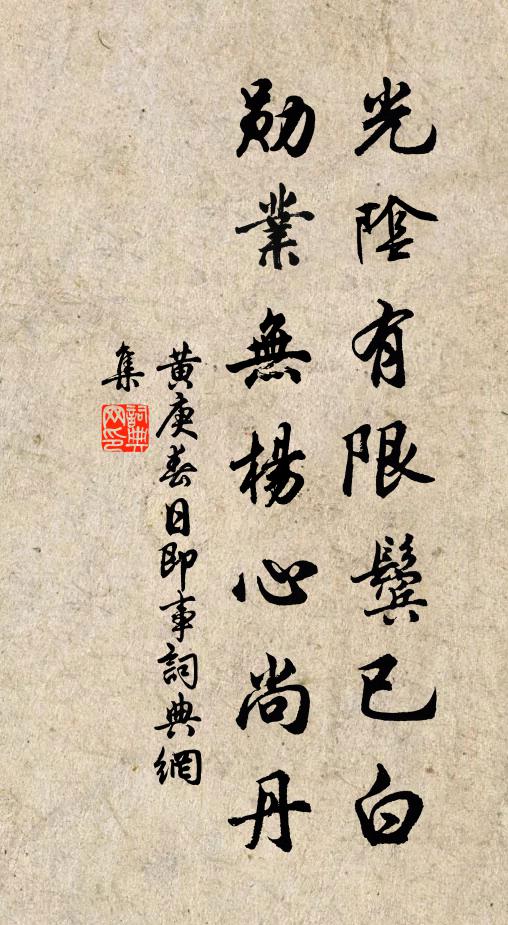 光陰有限鬓已白
勛業無楊心尚丹
黄庚春日即事詞典網
集
詞典網印